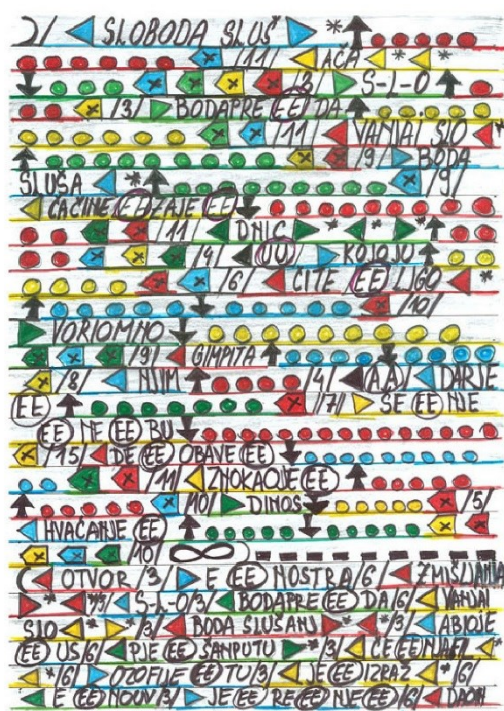 2/ SLOBODA SLUŠ*
/11/ AČA
/8/ S-L-O
/3/ BODAPRE EE DA
/11/ VANJAJ SLO
/9/ BODA
SLUŠA /9/
ČAČINE EE ZAJE EE
/11/ DNIC
/4/ UU KOJOJO
/6/ ČITE EE LIGO
/10/
VORIOMNO
/9/ GIMPITA
/8/ NUM /4/ AA DARJE
EE /7/ SE EE NJE
EE NE EE BU
/15/ DE EE OBAVE EE
/11/ ZNOKAOJE EE
/10/ DINOS /5/
HVAĆANJE EE
/10/
OTVOR /3/ E EE NOSTRA /6/ ZMIŠLJANJA
/3/ S-L-O /3/ BODAPRE EE DA /6/ VANJAJ
SLO /3/ BODA SLUŠANJ /3/ ABJOJE
EE US /6/ PJE EE ŠANPUTU /3/ ČE EE
/6/ OZOFIJE EE TU /3/ JE EE IZRAZ /6/
E EE NOUN /3/ JE EE RE EE NJE EE /6/ DAON